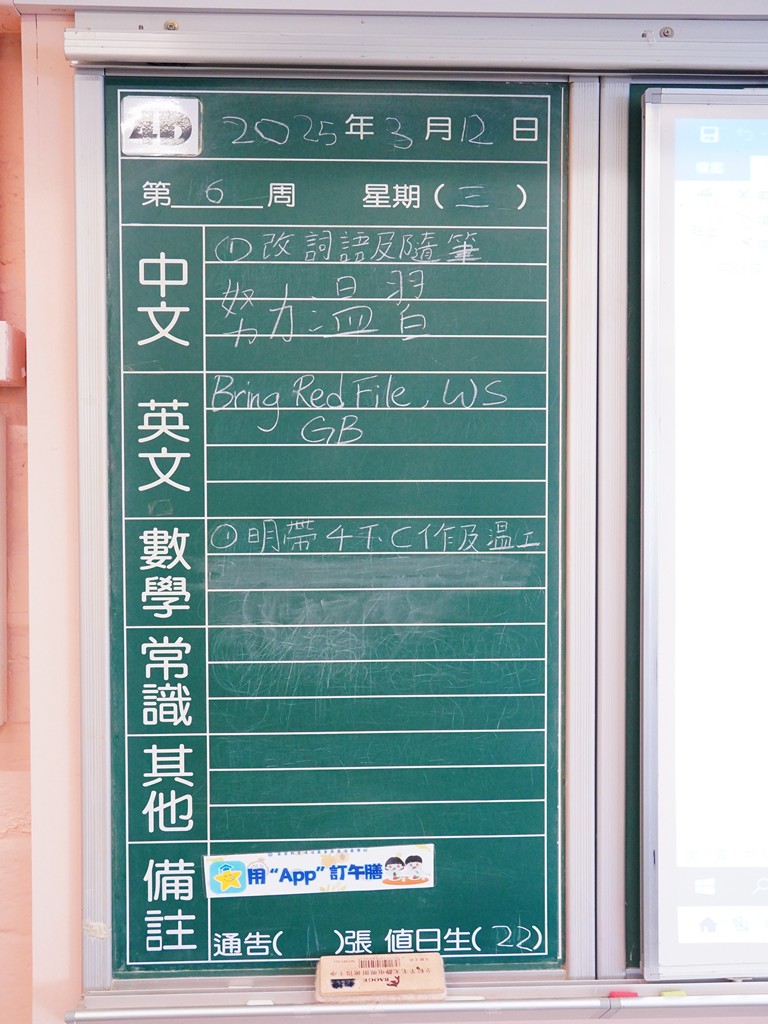 4D 2025年3月12日
第 6 周 星期(三)
中文
①改詞語及隨筆
努力溫習
英文
Bring Red File, WS
GB
數學
①明帶4下C作及溫工
常識
其他
備註
用“App”訂午膳
通告( )張 值日生(22)